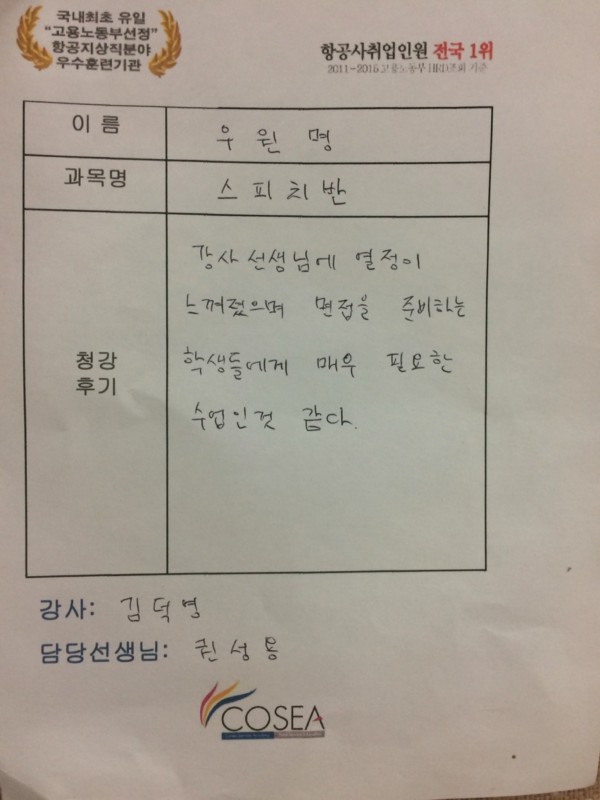 국내최초 유일
"고용노동부선정"
항공지상직분야
우수훈련기관
항공사취업인원 전국 1위
2011-2015 고용노동부 HRD조회 기준
이 름
우 원 명
과목명
스 피 치 반
청강
후기
강사 선생님에 열정이
느껴졌으며 면접을 준비하는
학생들에게 매우 필요한
수업인것 같다.
강사: 김 덕 영
담당선생님: 권 성 용
COSEA